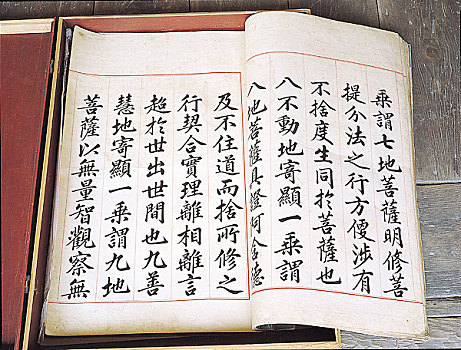 乘謂七地菩薩明修菩
提分法之行方便涉有
不捨度生同於菩薩也
八不動地寄顯一乘謂
八地菩薩具證何含德
及不住道而捨所修之
行契合實理離相離言
超於世出世間也九善
慧地寄顯一乘謂九地
菩薩以無量智觀察無